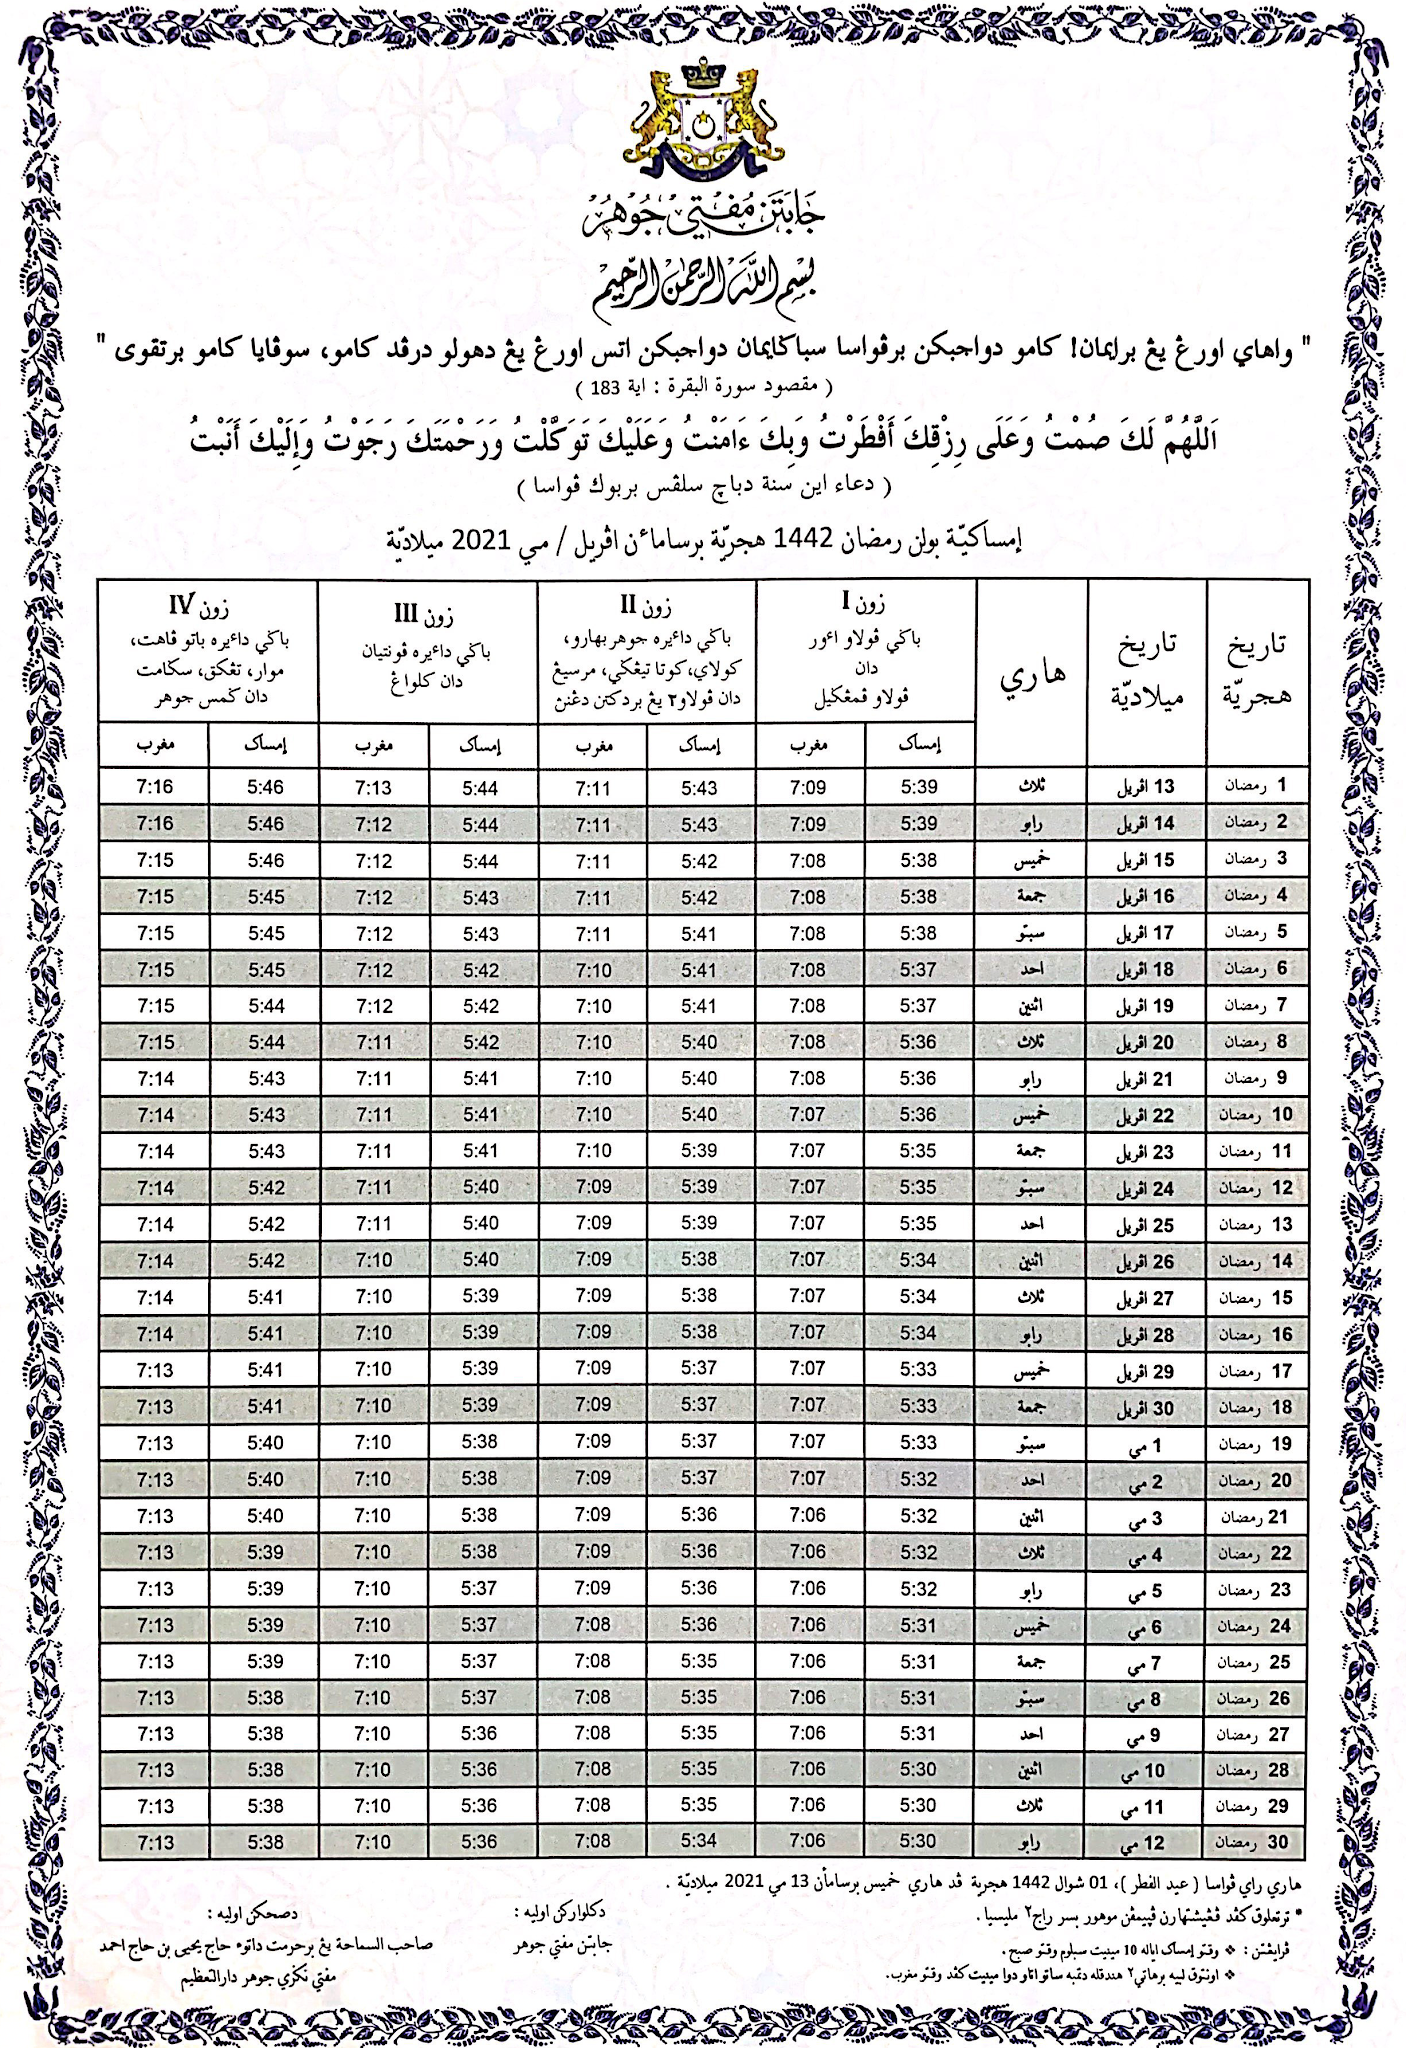 جابتن مفتي جوهر
بسم الله الرحمن الرحيم
" واهاي اورڠ يڠ برايمان! كامو دواجبكن برڤواسا سباݢايمان دواجبكن اتس اورڠ يڠ دهولو درڤد كامو، سوڤايا كامو برتقوى "
( مقصود سورة البقرة : اية 183 )
اَللَّهُمَّ لَكَ صُمْتُ وَعَلَى رِزْقِكَ أَفْطَرْتُ وَبِكَ ءَامَنْتُ وَعَلَيْكَ تَوَكَّلْتُ وَرَحْمَتَكَ رَجَوْتُ وَإِلَيْكَ أَنَبْتُ
( دعاء اين سنة دباچ سلڤس بربوك ڤواسا )
إمساكيّة بولن رمضان 1442 هجريّة برساماءن اڤريل / مي 2021 ميلاديّة
تاريخ هجريّة تاريخ ميلاديّة هاري
زون I
باݢي ڤولاو اءور
دان
ڤولاو ڤمڠݢيل
زون II
باݢي داءيره جوهر بهارو،
كولاي، كوتا تيڠݢي، مرسيڠ
دان ڤولاو٢ يڠ بردكتن دڠنڽ
زون III
باݢي داءيره ڤونتيان
دان كلواڠ
زون IV
باݢي داءيره باتو ڤاهت،
موار، تڠكق، سݢامت
دان ݢمس جوهر
إمساک مغرب إمساک مغرب إمساک مغرب إمساک مغرب
1 رمضان 13 اڤريل ثلاث 5:39 7:09 5:43 7:11 5:44 7:13 5:46 7:16
2 رمضان 14 اڤريل رابو 5:39 7:09 5:43 7:11 5:44 7:12 5:46 7:16
3 رمضان 15 اڤريل خميس 5:38 7:08 5:42 7:11 5:44 7:12 5:46 7:15
4 رمضان 16 اڤريل جمعة 5:38 7:08 5:42 7:11 5:43 7:12 5:45 7:15
5 رمضان 17 اڤريل سبتو 5:38 7:08 5:41 7:11 5:43 7:12 5:45 7:15
6 رمضان 18 اڤريل احد 5:37 7:08 5:41 7:10 5:42 7:12 5:45 7:15
7 رمضان 19 اڤريل اثنين 5:37 7:08 5:41 7:10 5:42 7:12 5:44 7:15
8 رمضان 20 اڤريل ثلاث 5:36 7:08 5:40 7:10 5:42 7:11 5:44 7:15
9 رمضان 21 اڤريل رابو 5:36 7:08 5:40 7:10 5:41 7:11 5:43 7:14
10 رمضان 22 اڤريل خميس 5:36 7:07 5:40 7:10 5:41 7:11 5:43 7:14
11 رمضان 23 اڤريل جمعة 5:35 7:07 5:39 7:10 5:41 7:11 5:43 7:14
12 رمضان 24 اڤريل سبتو 5:35 7:07 5:39 7:09 5:40 7:11 5:42 7:14
13 رمضان 25 اڤريل احد 5:35 7:07 5:39 7:09 5:40 7:11 5:42 7:14
14 رمضان 26 اڤريل اثنين 5:34 7:07 5:38 7:09 5:40 7:10 5:42 7:14
15 رمضان 27 اڤريل ثلاث 5:34 7:07 5:38 7:09 5:39 7:10 5:41 7:14
16 رمضان 28 اڤريل رابو 5:34 7:07 5:38 7:09 5:39 7:10 5:41 7:14
17 رمضان 29 اڤريل خميس 5:33 7:07 5:37 7:09 5:39 7:10 5:41 7:13
18 رمضان 30 اڤريل جمعة 5:33 7:07 5:37 7:09 5:39 7:10 5:41 7:13
19 رمضان 1 مي سبتو 5:33 7:07 5:37 7:09 5:38 7:10 5:40 7:13
20 رمضان 2 مي احد 5:32 7:07 5:37 7:09 5:38 7:10 5:40 7:13
21 رمضان 3 مي اثنين 5:32 7:06 5:36 7:09 5:38 7:10 5:40 7:13
22 رمضان 4 مي ثلاث 5:32 7:06 5:36 7:09 5:38 7:10 5:39 7:13
23 رمضان 5 مي رابو 5:32 7:06 5:36 7:09 5:37 7:10 5:39 7:13
24 رمضان 6 مي خميس 5:31 7:06 5:36 7:08 5:37 7:10 5:39 7:13
25 رمضان 7 مي جمعة 5:31 7:06 5:35 7:08 5:37 7:10 5:39 7:13
26 رمضان 8 مي سبتو 5:31 7:06 5:35 7:08 5:37 7:10 5:38 7:13
27 رمضان 9 مي احد 5:31 7:06 5:35 7:08 5:36 7:10 5:38 7:13
28 رمضان 10 مي اثنين 5:30 7:06 5:35 7:08 5:36 7:10 5:38 7:13
29 رمضان 11 مي ثلاث 5:30 7:06 5:35 7:08 5:36 7:10 5:38 7:13
30 رمضان 12 مي رابو 5:30 7:06 5:34 7:08 5:36 7:10 5:38 7:13
هاري راي ڤواسا ( عيد الفطر )، 01 شوال 1442 هجرية ڤد هاري خميس برسامأن 13 مي 2021 ميلاديّة .
* ترتعلوق كڤد ڤڠيشتهارن ڤڽيمڤن موهور بسر راج٢ مليسيا .
ڤرايڠتن : ❖ وقتو إمساک اياله 10 مينيت سبلوم وقتو صبح .
❖ اونتوق لبيه برهاتي٢ هندقله دتمبه ساتو اتاو دوا مينيت كڤد وقتو مغرب.
دكلواركن اوليه :
جابتن مفتي جوهر
دصحكن اوليه :
صاحب السماحة يڠ برحرمت داتوء حاج يحيى بن حاج احمد
مفتي نݢري جوهر دارالتعظيم